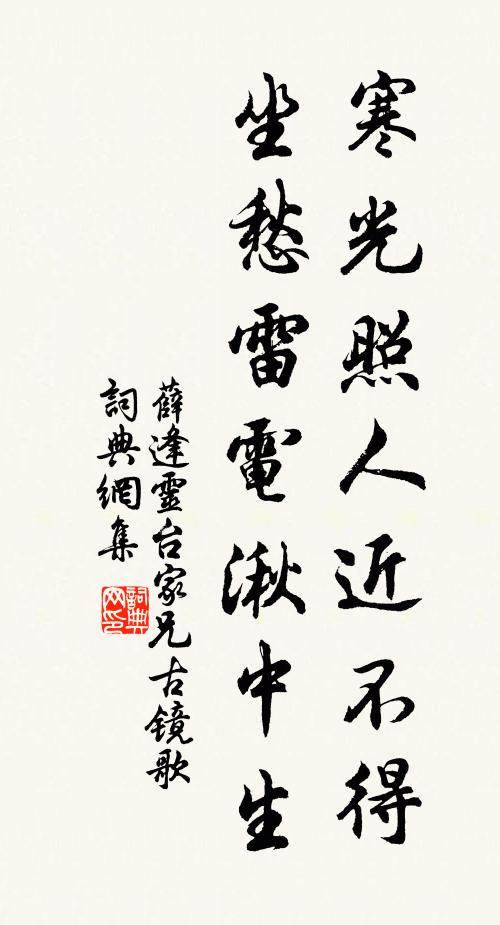 寒光照人近不得
坐愁雷電湫中生
薛逢靈台家兄古镜歌
詞典網集
詞典网印